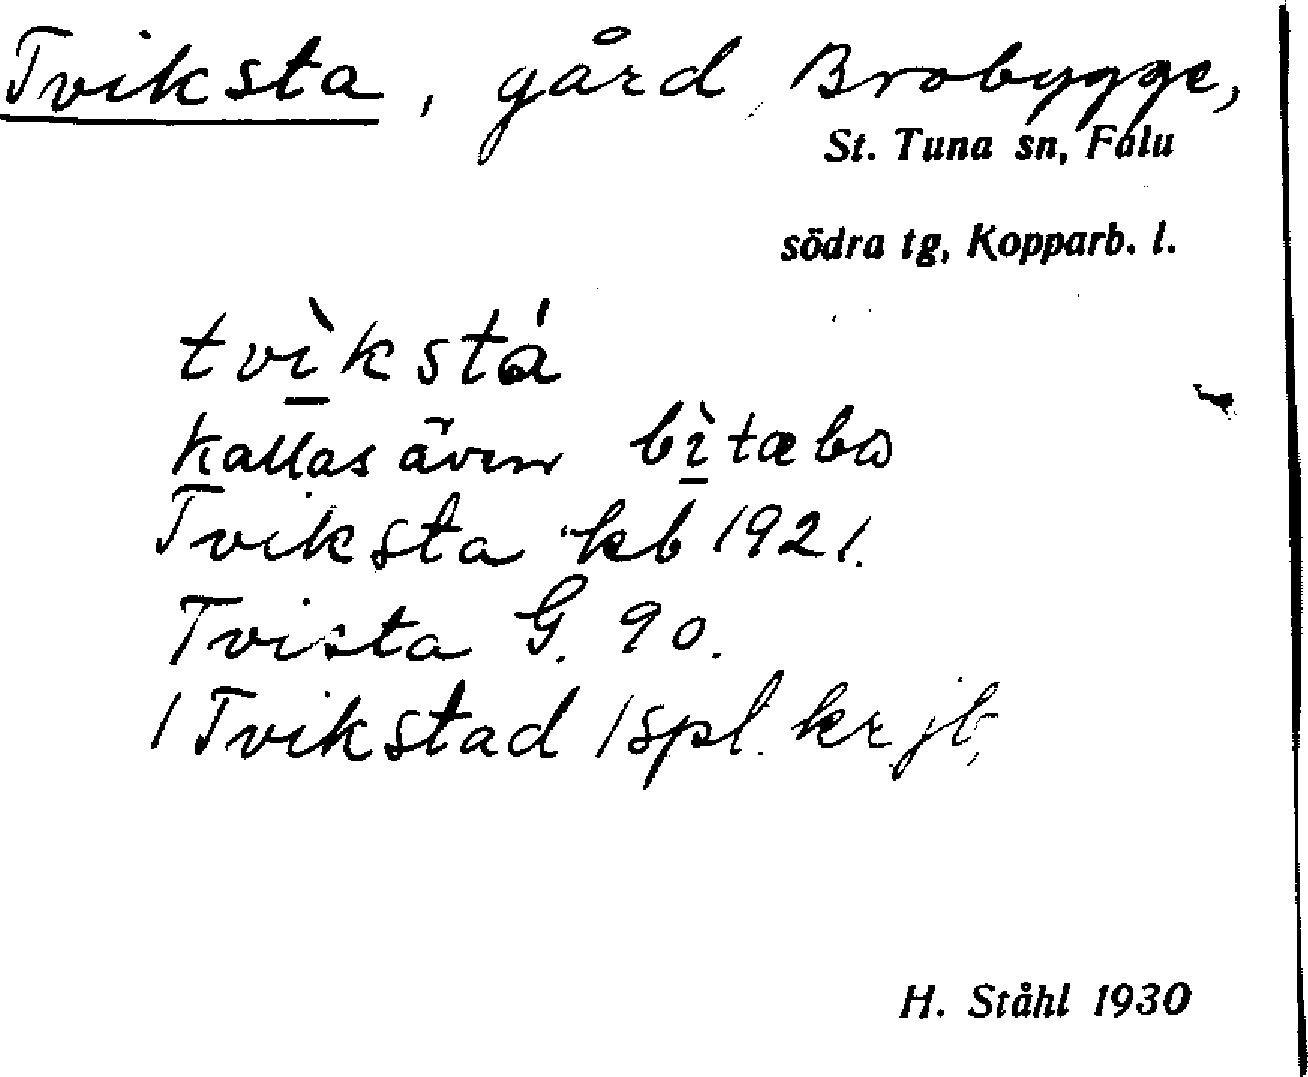 Tviksta, gård, Brobygge,
St. Tuna sn, Falu
södra tg, Kopparb. l.
tvì̲kstá
kallas även bì̲tæbɷ
Tviksta kb 1921.
Tvista G. 90.
1 Tvikstad 1 spl. kr. jb,
H. Ståhl 1930